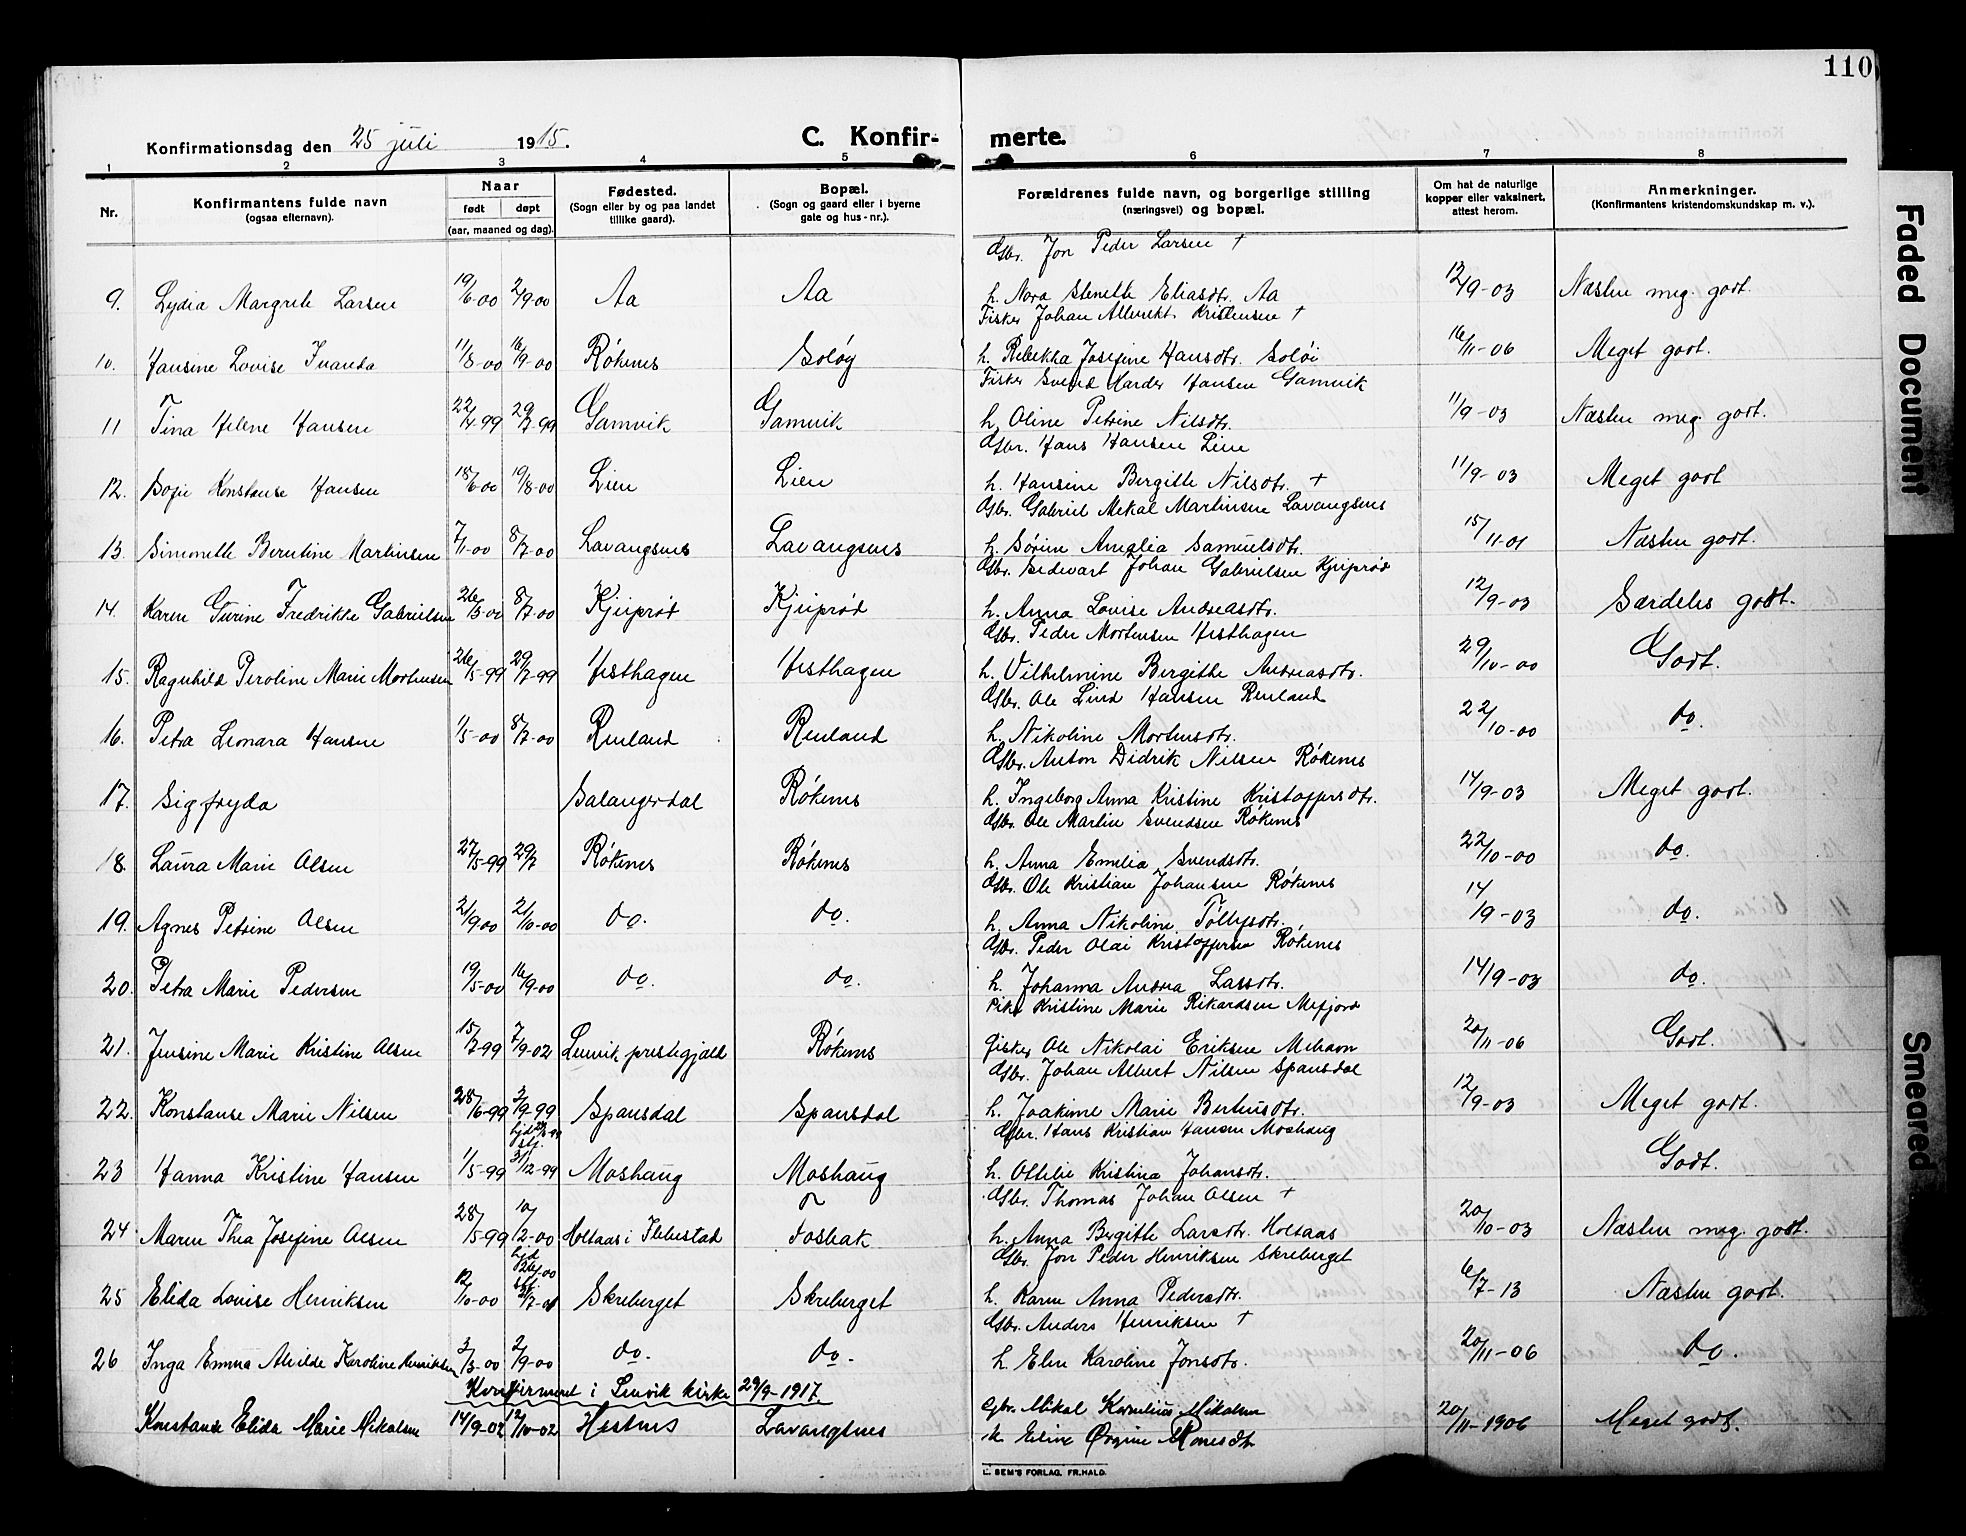 110
Konfirmationsdag den 25 juli 1915.
C. Konfirmerte.
1 2 3 4 5 6 7 8
Nr.
Konfirmantens fulde navn
(ogsaa efternavn).
Naar
født døpt
(aar, maaned og dag).
Fødested.
(Sogn eller by og paa landet
tillike gaard).
Bopæl.
(Sogn og gaard eller i byerne
gate og hus-nr.).
Forældrenes fulde navn, og borgerlige stilling
(næringsvei) og bopæl.
Om hat de naturlige
kopper eller vaksinert,
attest herom.
Anmerkninger.
(Konfirmantens kristendomskundskap m. v.).
Gbr. Jon Peder Larsen †
9. Lydia Margrete Larsen 19/6-00 2/9-00 Aa Aa h. Nora Stenette Eliasdtr. Aa 12/9-03 Næsten meg. godt.
Fisker Johan Albrekt Kristensen †
10. Hansine Lovise Ivanda 11/8-00 16/9-00 Røkenes Soløy h. Rebekka Josefine Hansdtr. Soløi 16/11-06 Meget godt.
Fisker Svend Harder Hansen Gamvik
11 Tina Helene Hansen 22/4-99 29/7-99 Gamvik Gamvik h. Oline Petrine Nilsdtr. 11/9-03 Næsten meg. godt.
Gbr. Hans Hansen Lien
12. Sofie Konstanse Hansen 18/6-00 19/8-00 Lien Lien h. Hansine Bergitte Nilsdtr. † 11/9-03 Meget godt
Gbr. Gabriel Mekal Martinsen Lavangsnes
13. Simonette Berntine Martinsen 7/1-00 8/7-00 Lavangsnes Lavangsnes h. Sørine Amalia Samuelsdtr. 15/11-01 Næsten godt.
Gbr. Sedevart Johan Gabrielsen Kjeiprød
14. Karen Gurine Fredrikke Gabrielsen 26/3-00 8/7-00 Kjeiprød Kjeiprød h. Anna Lovise Andreasdtr. 12/9-03 Særdeles godt.
Gbr. Peder Mortensen Hesthagen
15. Ragnhild Peroline Marie Mortensen 26/5-99 29/7-99 Hesthagen Hesthagen h. Vilhelmine Bergithe Andreasdtr. 29/10-00 Godt.
Gbr. Ole Lind Hansen Renland
16. Petra Leonara Hansen 1/5-00 8/7-00 Renland Renland h. Nikoline Mortensdtr. 22/10-00 do.
Gbr. Anton Didrik Nilsen Røkenes
17. Sigfryda Salangsdal Røkenes h. Ingeborg Anna Kristine Kristoffersdtr. 14/9-03 Meget godt.
Gbr. Ole Martin Svendsen Røkenes
18. Laura Marie Olsen 27/5-99 29/7 Røkenes Røkenes h. Anna Emilia Svendsdtr. 22/10-00 do.
Gbr. Ole Kristian Johansen Røkenes
19. Agnes Petrine Olsen 2/9-00 21/10-00 do. do. h. Anna Nikoline Tollefsdtr. 14/9-03 do.
Gbr. Peder Olai Kristoffersen Røkenes
20. Petra Marie Pedersen 19/5-00 16/9-00 do. do. h. Johanna Andrea Lassdtr. 14/9-03 do.
Pike Kristine Marie Rikardsen Mefjord
21. Jensine Marie Kristine Olsen 15/7-99 7/9-02 Lenvik prestegjæld Røkenes Fisker Ole Nikolai Eriksen Mehavn 20/11-06 Godt.
Gbr. Johan Albert Nilsen Spansdal
22. Konstanse Marie Nilsen 28/6-99 3/9-99 Spansdal Spansdal h. Joakime Marie Berteusdtr. 12/9-03 Meget godt.
Gbr. Hans Kristian Hansen Moshaug
23 Hanna Kristine Hansen 1/5-99 hjd. stf. 31/12-99 Moshaug Moshaug h. Ottelie Kristina Johansdtr. Godt.
Gbr. Thomas Johan Olsen †
24 Maren Thea Josefine Olsen 28/5-99 10/2-00 Holtaas i Ibbestad Fosbak h. Anna Bergitte Larsdtr. Holtaas 20/10-03 Næsten meg. godt.
Gbr. Jon Peder Henriksen Skreberget
25 Elida Lovise Henriksen 12/10-00 hjd. stf. Skreberget Skreberget h. Karen Anna Pedersdtr. 6/7-13 Næsten godt.
Gbr. Anders Henriksen †
26 Inga Emma Alvilde Karoline Henriksen 3/3-00 2/9-00 do. do. h. Elen Karoline Jonsdtr. 20/11-06 do.
Konfirmeret i Lenvik kirke 29/9-1917.
Gbr. Mikal Kornelius Mikalsen
Konstanse Elida Marie Mikalsen 14/9-02 12/10-02 Hestnes Lavangsnes h. Eline Ørgine Monesdtr 20/11-1906 Meget godt.
L. SEM'S FORLAG. FR.HALD.
Faded Document
Smeared